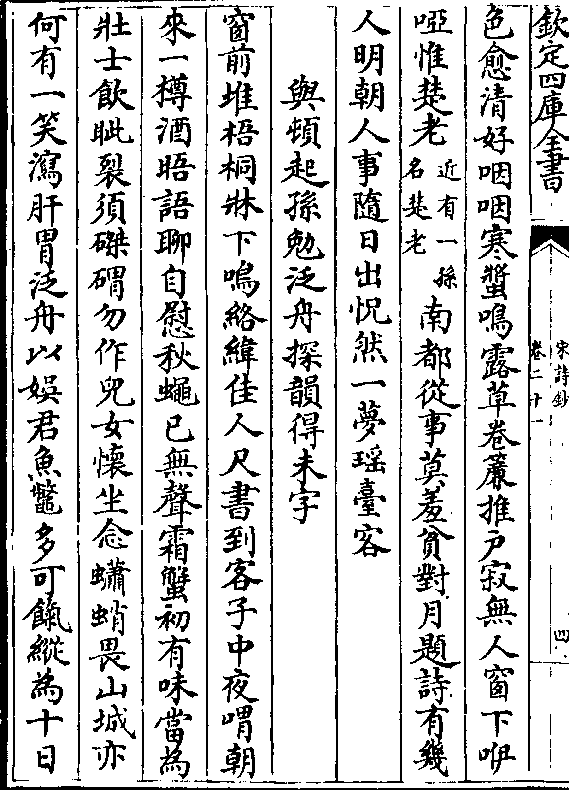 欽定四庫全書
宋詩鈔
卷二十一
四
色愈清好咽咽寒螿鳴露草卷簾推戶寂無人窗下咿
啞惟楚老近有一孫名楚老南都從事莫羞貧對月題詩有幾
人明朝人事隨日出怳然一夢瑶臺客
與頓起孫勉泛舟探韻得未字
窗前堆梧桐牀下鳴絡緯佳人尺書到客子中夜喟朝
來一樽酒晤語聊自慰秋蠅已無聲霜蟹初有味當為
壯士飲眦裂須磔磔勿作兒女懷坐念蠨蛸畏山城亦
何有一笑瀉肝胃泛舟以娛君魚鼈多可餼縱為十日